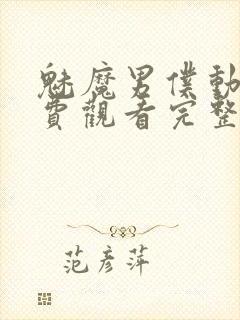 魅魔男僕動
費觀看完整
范彥萍